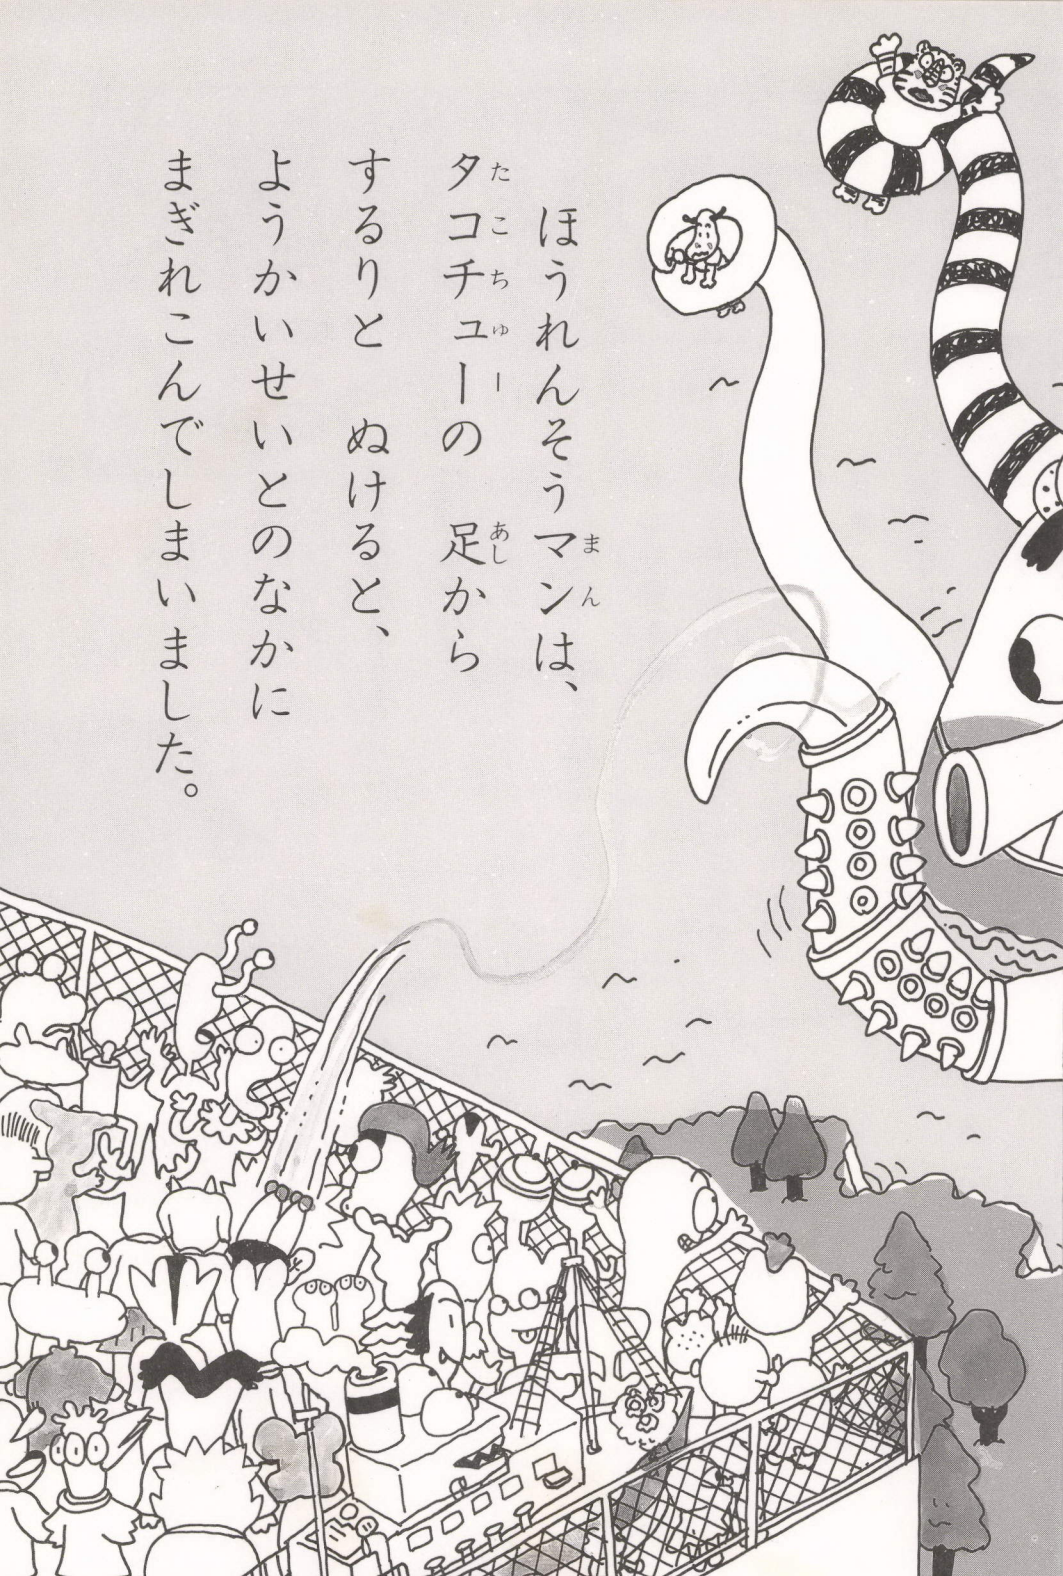 ほうれんそうマンは、
タコチューの　足から
するりと　ぬけると、
ようかいせいとのなかに
まぎれこんでしまいました。